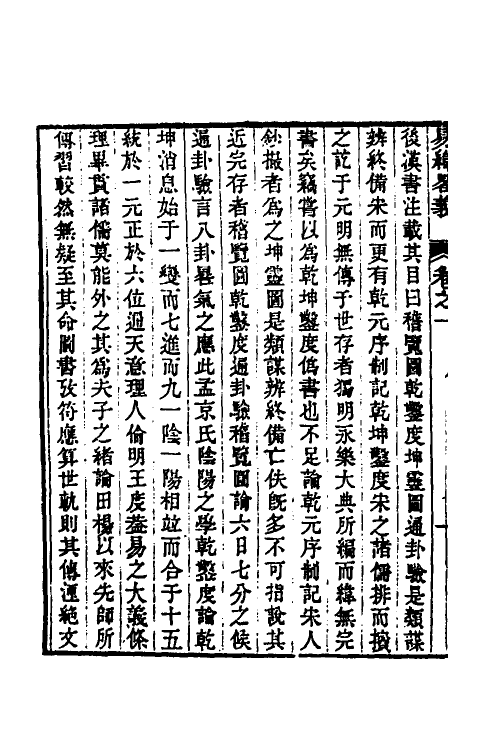 易緯畧義 卷之一
後漢書注載其目曰稽覽圖乾鑿度坤靈圖通卦驗是類謀
辨終備宋而更有乾元序制記乾坤鑿度宋之諸儒排而擯
之訖于元明無傳于世存者獨明永樂大典所編而緯無完
書矣竊嘗以為乾坤鑿度偽書也不足論乾元序制記宋人
鈔撮者為之坤靈圖是類謀辨終備亡佚旣多不可指說其
近完存者稽覽圖乾鑿度通卦驗稽覽圖論六日七分之候
通卦驗言八卦晷氣之應此孟京氏陰陽之學乾鑿度論乾
坤消息始于一變而七進而九一陰一陽相竝而合于十五
統於一元正於六位通天意理人倫明王度葢易之大義條
理畢貫諸儒莫能外之其為夫子之緒論田楊以來先師所
傳習較然無疑至其命圖書攷符應算世軌則其傳湮絶文